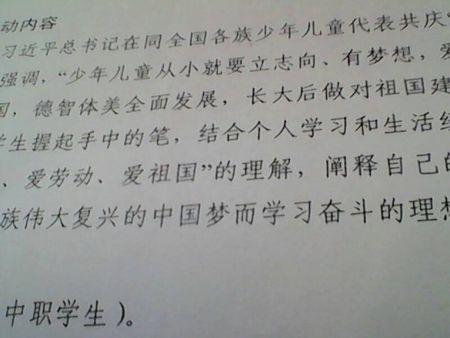 动内容
习近平总书记在同全国各族少年儿童代表共庆“
强调，“少年儿童从小就要立志向、有梦想，爱
国，德智体美全面发展，长大后做对祖国建
学生握起手中的笔，结合个人学习和生活经
、爱劳动、爱祖国”的理解，阐释自己的
族伟大复兴的中国梦而学习奋斗的理想
中职学生）。